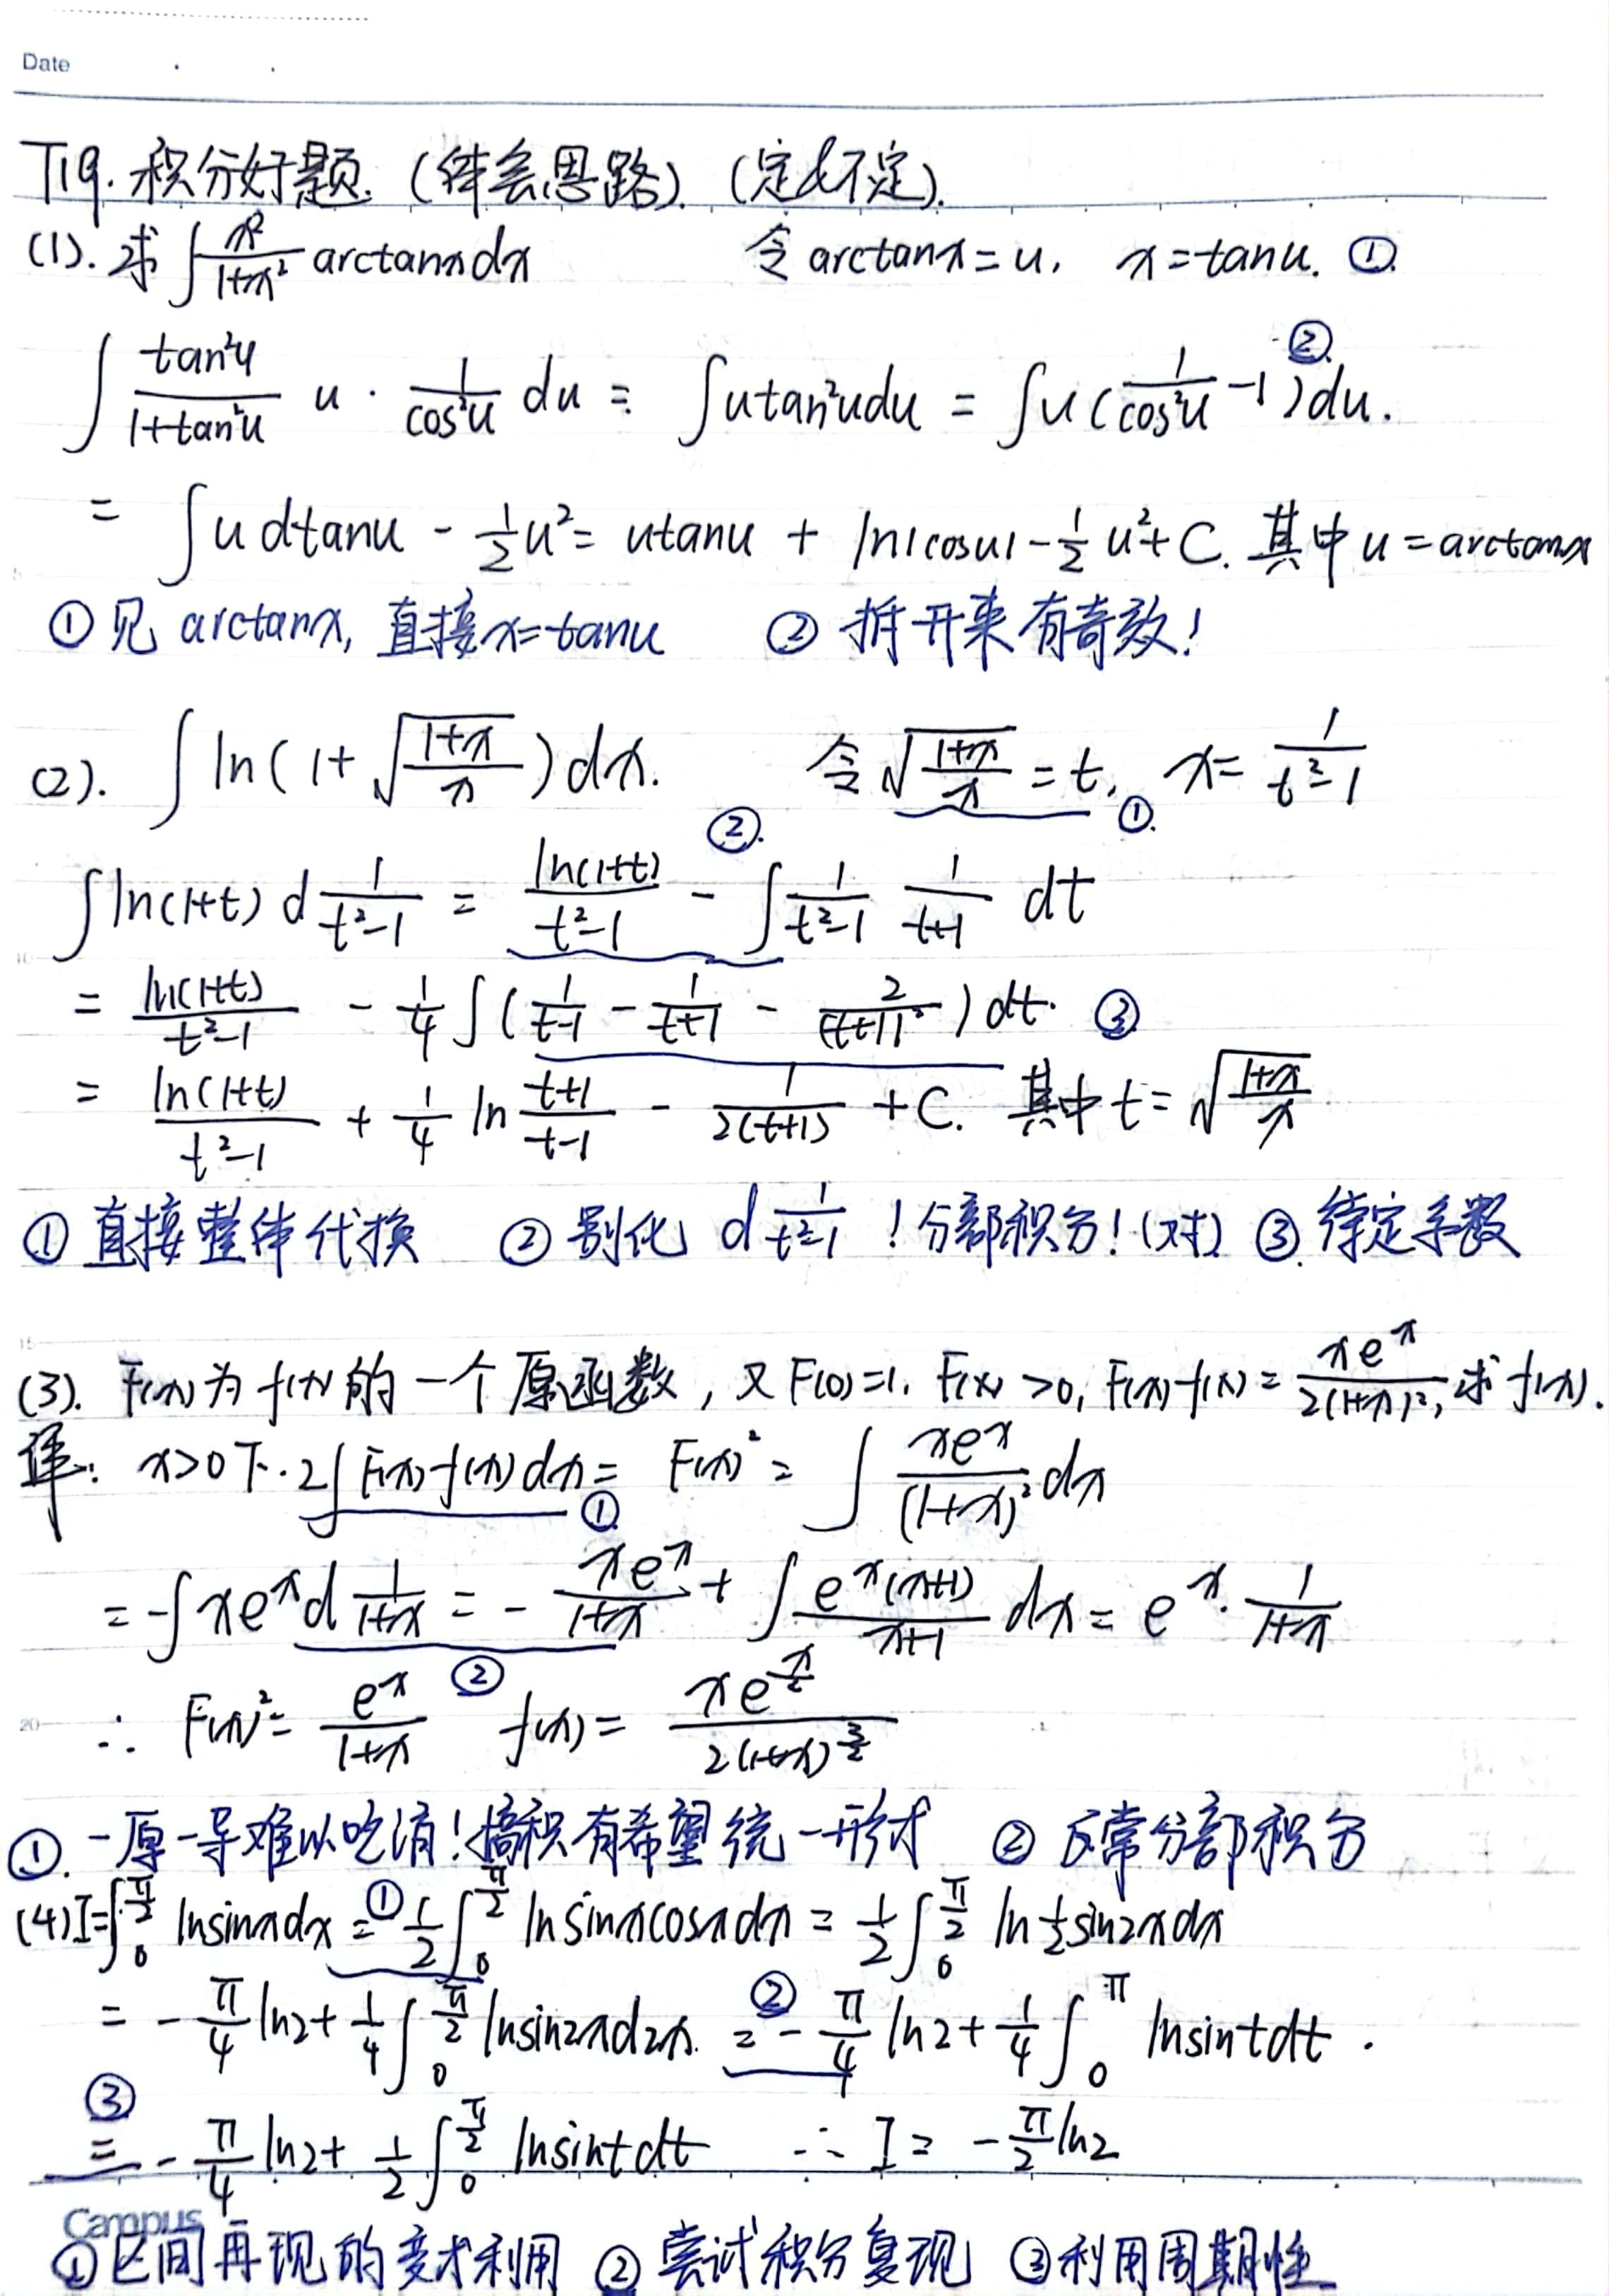 Date
T19. 积分好题. (体会思路). (定&不定).
(1). 求 ∫ x²/(1+x²) arctanx dx 令 arctanx = u, x = tanu. ①
∫ tan²u/(1+tan²u) u · 1/cos²u du = ∫ u tan²u du = ∫ u (1/cos²u - 1) du. ②
= ∫ u dtanu - 1/2 u² = utanu + ln|cosu| - 1/2 u² + C. 其中 u = arctanx
① 见 arctanx, 直接 x=tanu ② 拆开来有奇效!
(2). ∫ ln(1+√((1+x)/x)) dx. 令 √((1+x)/x) = t, ①. x = 1/(t²-1)
∫ ln(1+t) d 1/(t²-1) = ln(1+t)/(t²-1) - ∫ 1/(t²-1) 1/(t+1) dt ②.
= ln(1+t)/(t²-1) - 1/4 ∫ (1/(t-1) - 1/(t+1) - 2/(t+1)²) dt. ③
= ln(1+t)/(t²-1) + 1/4 ln (t+1)/(t-1) - 1/(2(t+1)) + C. 其中 t = √((1+x)/x)
① 直接整体代换 ② 别化 d 1/(t²-1) ! 分部积分! (对) ③. 待定系数
(3). F(x) 为 f(x) 的一个原函数, 又 F(0)=1, F(x) >0, F(x)f(x) = xe^x/(2(1+x)²), 求 f(x).
译: x>0 下. 2∫F(x)f(x)dx = F(x)² = ∫ xe^x/(1+x)² dx ①
= -∫ xe^x d 1/(1+x) = - xe^x/(1+x) + ∫ e^x(x+1)/(x+1) dx = e^x · 1/(1+x) ②
∴ F(x)² = e^x/(1+x) f(x) = xe^(x/2)/(2(1+x)^(3/2))
①. 一原一导难以吃消! 搞积有希望统一形式 ② 反常分部积分
(4) I=∫₀^(π/2) lnsinx dx =① 1/2 ∫₀^(π/2) lnsinxcosx dx = 1/2 ∫₀^(π/2) ln 1/2 sin2x dx
= - π/4 ln2 + 1/4 ∫₀^(π/2) lnsin2x d2x. =② - π/4 ln2 + 1/4 ∫₀^π lnsint dt .
=③ - π/4 ln2 + 1/2 ∫₀^(π/2) lnsint dt ∴ I = - π/2 ln2
Campus
① 区间再现的变式利用 ② 尝试积分复现 ③ 利用周期性